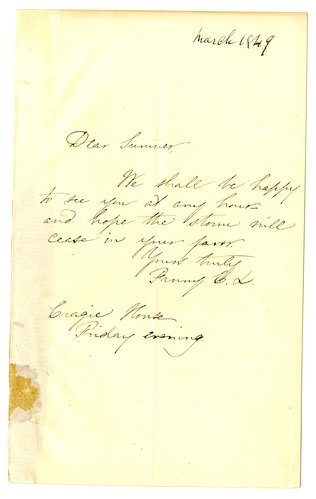 March 1849
Dear Sumner,
We shall be happy
to see you at any hour
and hope the storm will
cease in your favor
Yours truly
Fanny E. L.
Cragie House
Friday evening.